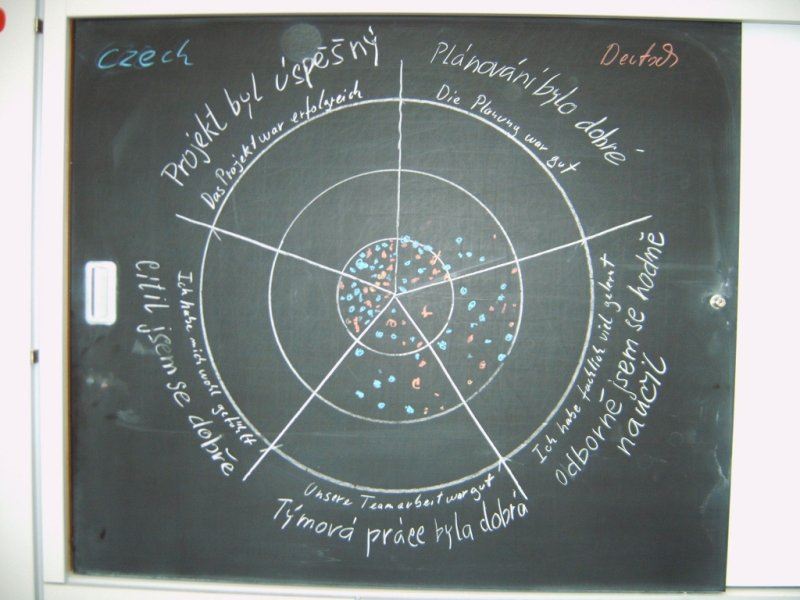 czech
Deutsch
Projekt byl úspěšný
Das Projekt war erfolgreich
Plánování bylo dobré
Die Planung war gut
Ich habe fachlich viel gelernt
odborně jsem se hodně
naučil
Unsere Teamarbeit war gut
Týmová práce byla dobrá
Ich habe mich wohl gefühlt
cítil jsem se dobře